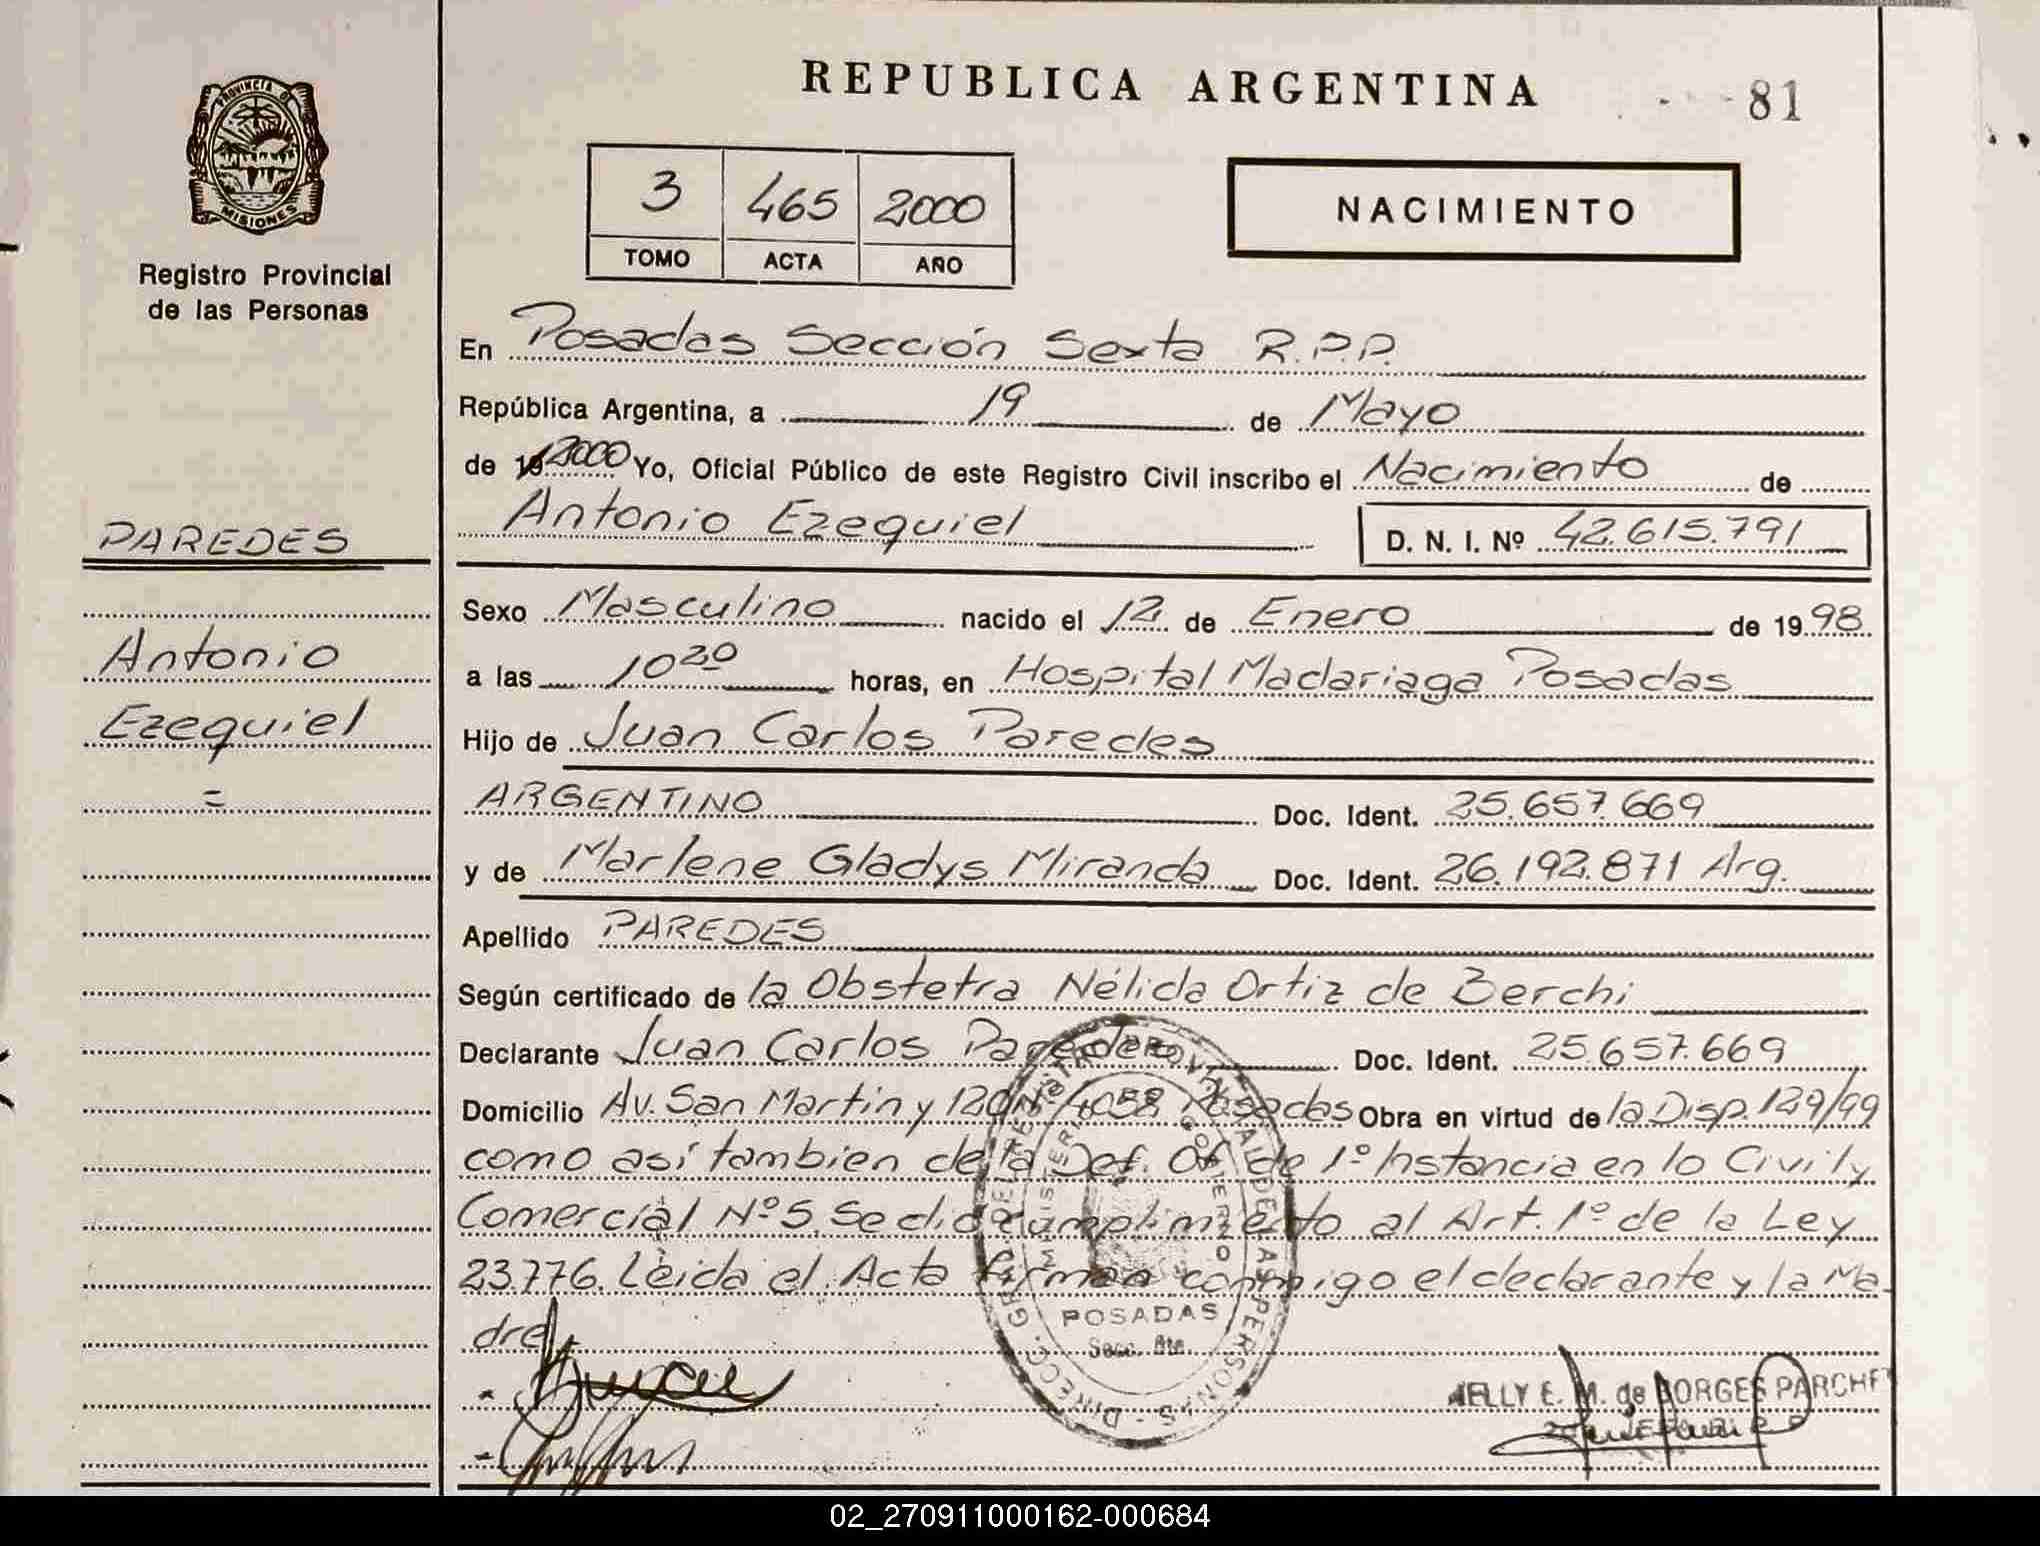 PROVINCIA DE
MISIONES
Registro Provincial
de las Personas
PAREDES
Antonio
Ezequiel
=
REPUBLICA ARGENTINA
81
3 465 2000
TOMO ACTA AÑO
NACIMIENTO
En Posadas Sección Sexta R.P.P.
República Argentina, a 19 de Mayo
de 19 2000 Yo, Oficial Público de este Registro Civil inscribo el Nacimiento de
Antonio Ezequiel D. N. I. Nº 42.615.791
Sexo Masculino nacido el 12 de Enero de 1998
a las 10 20 horas, en Hospital Madariaga Posadas
Hijo de Juan Carlos Paredes
ARGENTINO Doc. Ident. 25.657.669
y de Marlene Gladys Miranda Doc. Ident. 26.192.871 Arg.
Apellido PAREDES
Según certificado de la Obstetra Nélida Ortiz de Berchi
Declarante Juan Carlos Paredes Doc. Ident. 25.657.669
Domicilio Av. San Martin y 120 Nº 4058 Posadas Obra en virtud de la Disp. 129/99
como así tambien de la Def. Of. de 1º Instancia en lo Civil y
Comercial Nº 5. Se dió cumplimiento al Art. 1º de la Ley
23.776. Leida el Acta firman conmigo el declarante y la Ma
dre
POSADAS
NELLY E. M. de BORGES PARCHET
02_270911000162-000684